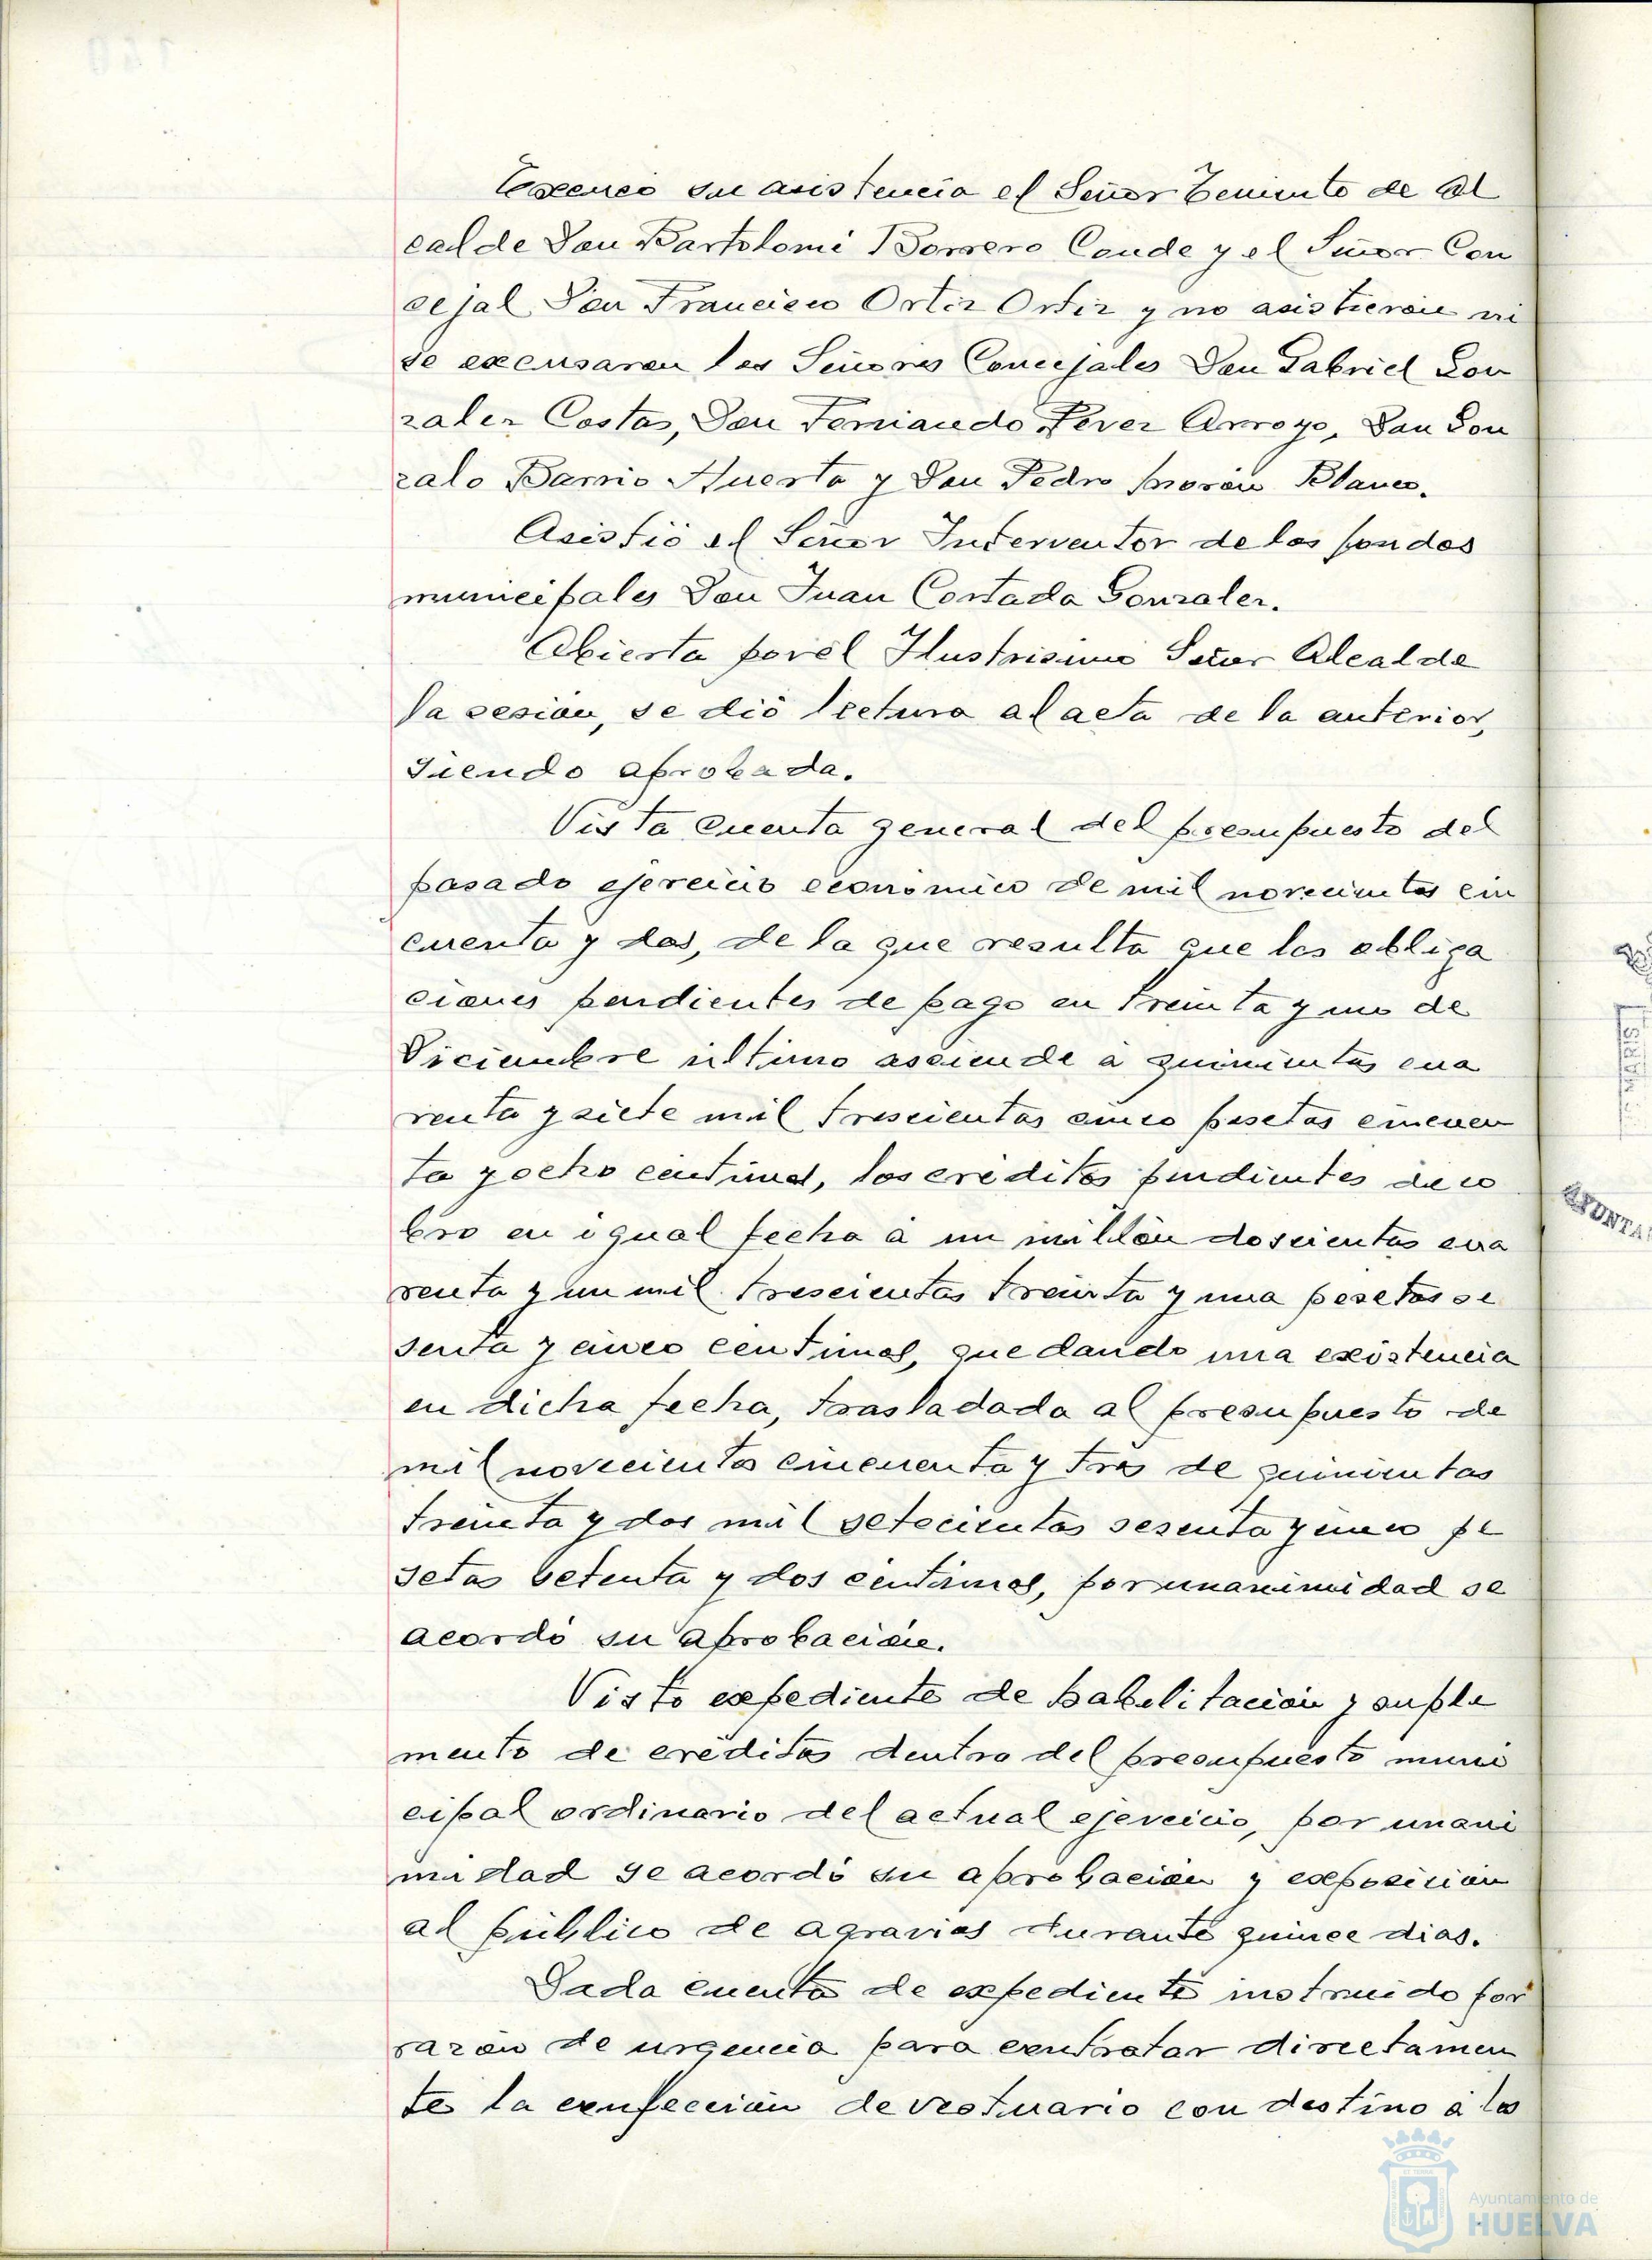 Excusó su asistencia el Señor Teniente de Al
calde Don Bartolomé Borrero Conde y el Señor Con
cejal Don Francisco Ortiz Ortiz y no asistieron ni
se excusaron los Señores Concejales Don Gabriel Gon
zalez Costas, Don Fernando Pérez Arroyo, Don Gon
zalo Barrio Huerta y Don Pedro Morón Blanco.
Asistió el Señor Interventor de los fondos
municipales Don Juan Cortada Gonzalez.
Abierta por el Ilustrisimo Señor Alcalde
la sesion, se dió lectura al acta de la anterior,
siendo aprobada.
Vista cuenta general del presupuesto del
pasado ejercicio económico de mil novecientos cin
cuenta y dos, de la que resulta que las obliga
ciones pendientes de pago en treinta y uno de
Diciembre último asciende á quinientas cua
renta y siete mil trescientas cinco pesetas cincuen
ta y ocho centimos, los créditos pendientes de co
bro en igual fecha á un millón doscientas cua
renta y un mil trescientas treinta y una pesetas se
senta y cinco centimos, quedando una existencia
en dicha fecha, trasladada al presupuesto de
mil novecientos cincuenta y tres de quinientas
treinta y dos mil setecientas sesenta y cinco pe
setas setenta y dos centimos, por unanimidad se
acordó su aprobación.
Visto expediente de habilitación y suple
mento de créditos dentro del presupuesto muni
cipal ordinario del actual ejercicio, por unani
midad se acordó su aprobación y exposición
al público de agravios durante quince dias.
Dada cuenta de expediente instruido por
razón de urgencia para contratar directamen
te la confección de vestuario con destino á los
AYUNTA
Ayuntamiento de
HUELVA